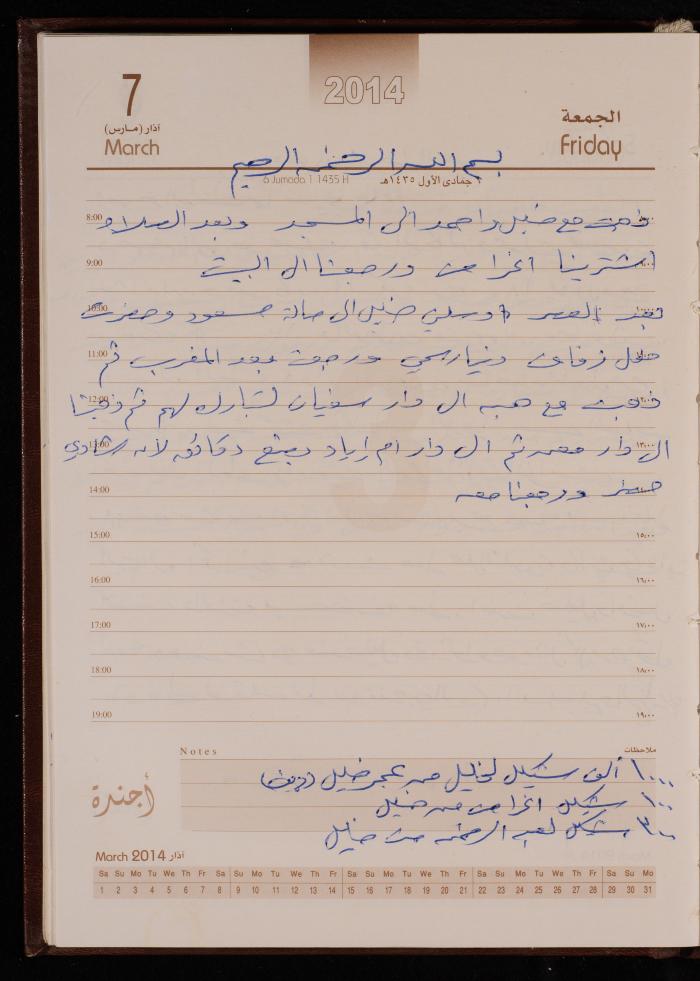 2014
7
آذار (مارس)
March
الجمعة
Friday
بسم الله الرحمن الرحيم
6 Jumada 1 1435 H
٦ جمادى الأول ١٤٣٥هـ
8:00 ذهبت مع خليل واحمد الى المسجد وبعد الصلاة
9:00 اشترينا اغراض ورجعنا الى البيت
10:00 بعد العصر اوصلني خليل الى صالة مسعود وحضرت
11:00 حفل زفاف ورجعت بعد المغرب ثم
12:00 ذهبت مع هبه الى دار سفيان لنبارك لهم ثم ذهبنا
13:00 ١٣:٠٠ الى دار ثم الى دار ام اياد بضع دقائق لأن شادي
14:00 حضر ورجعنا معه
15:00 ١٥:٠٠
16:00 ١٦:٠٠
17:00 ١٧:٠٠
18:00 ١٨:٠٠
19:00 ١٩:٠٠
Notes ملاحظات
١٠٠٠ ألف شيكل لخليل من خليل
١٠٠ شيكل اغراض من خليل
٣٠٠ شيكل لعبد الرحمن من خليل
أجندة
March 2014 آذار
Sa Su Mo Tu We Th Fr Sa Su Mo Tu We Th Fr Sa Su Mo Tu We Th Fr Sa Su Mo Tu We Th Fr Sa Su Mo
1 2 3 4 5 6 7 8 9 10 11 12 13 14 15 16 17 18 19 20 21 22 23 24 25 26 27 28 29 30 31